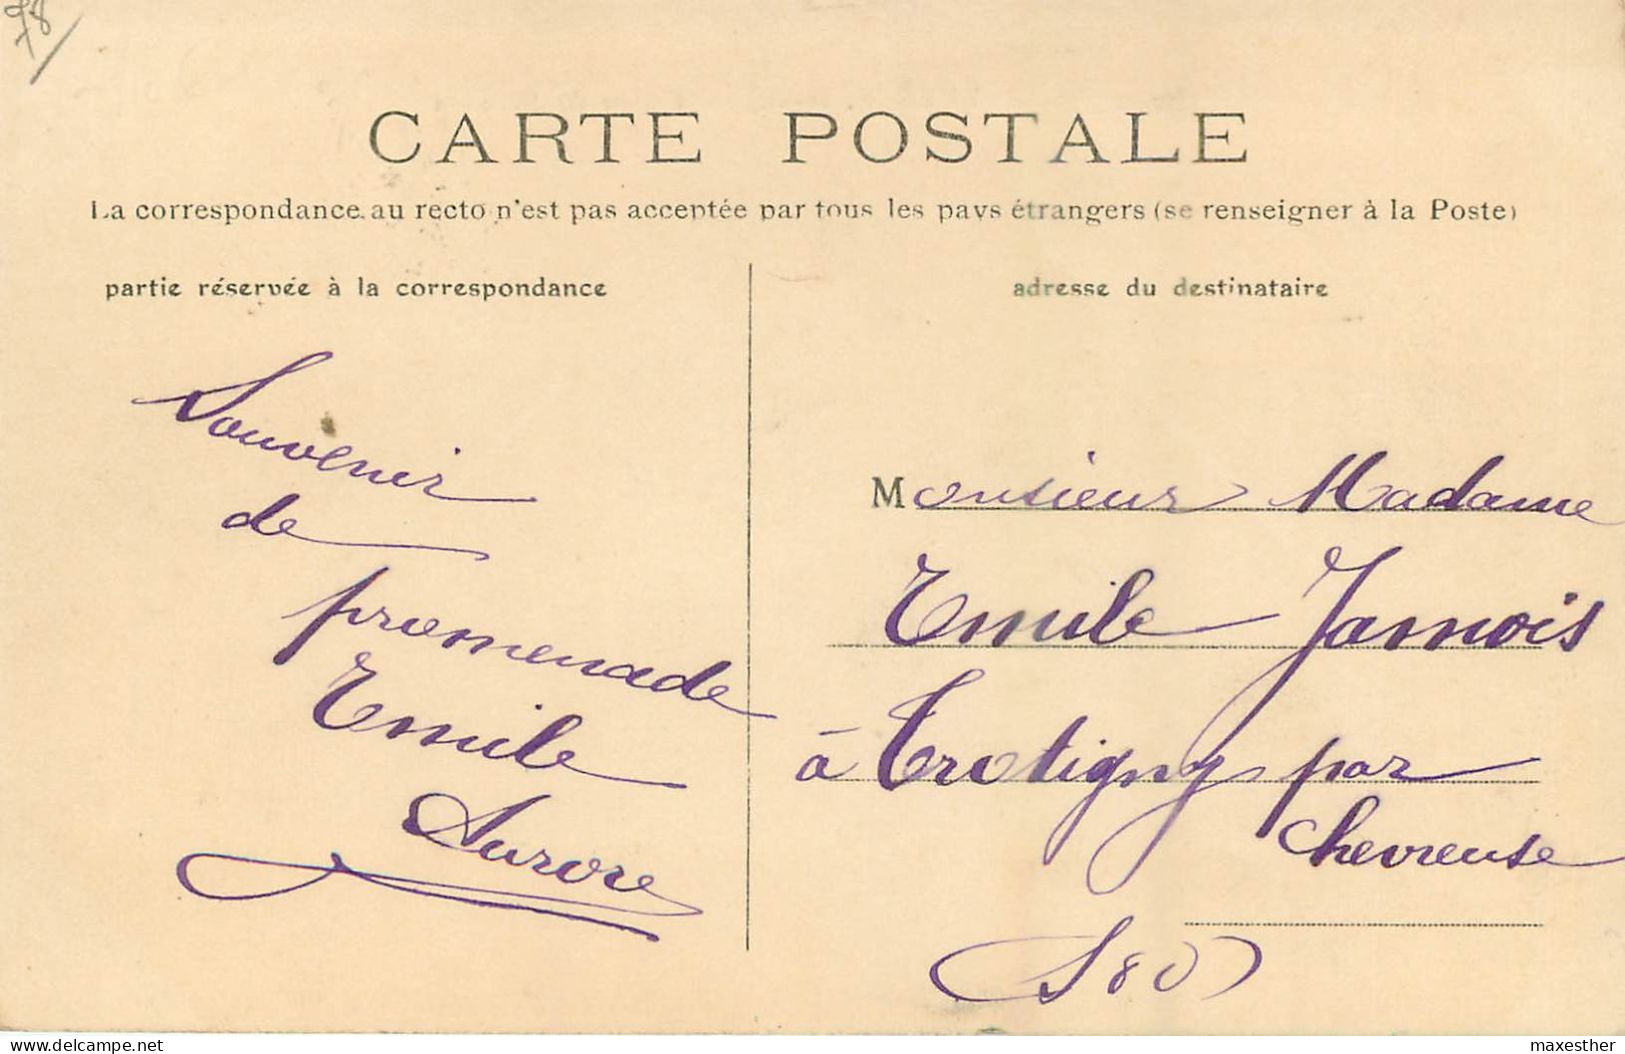 78
CARTE POSTALE
La correspondance au recto n'est pas acceptée par tous les pays étrangers (se renseigner à la Poste)
partie réservée à la correspondance
adresse du destinataire
Souvenir
de
promenade
Emile
Aurore
Monsieur Madame
Emile Jamois
à Trotigny par
Chevreuse
(S & O)
delcampe.net
maxesther